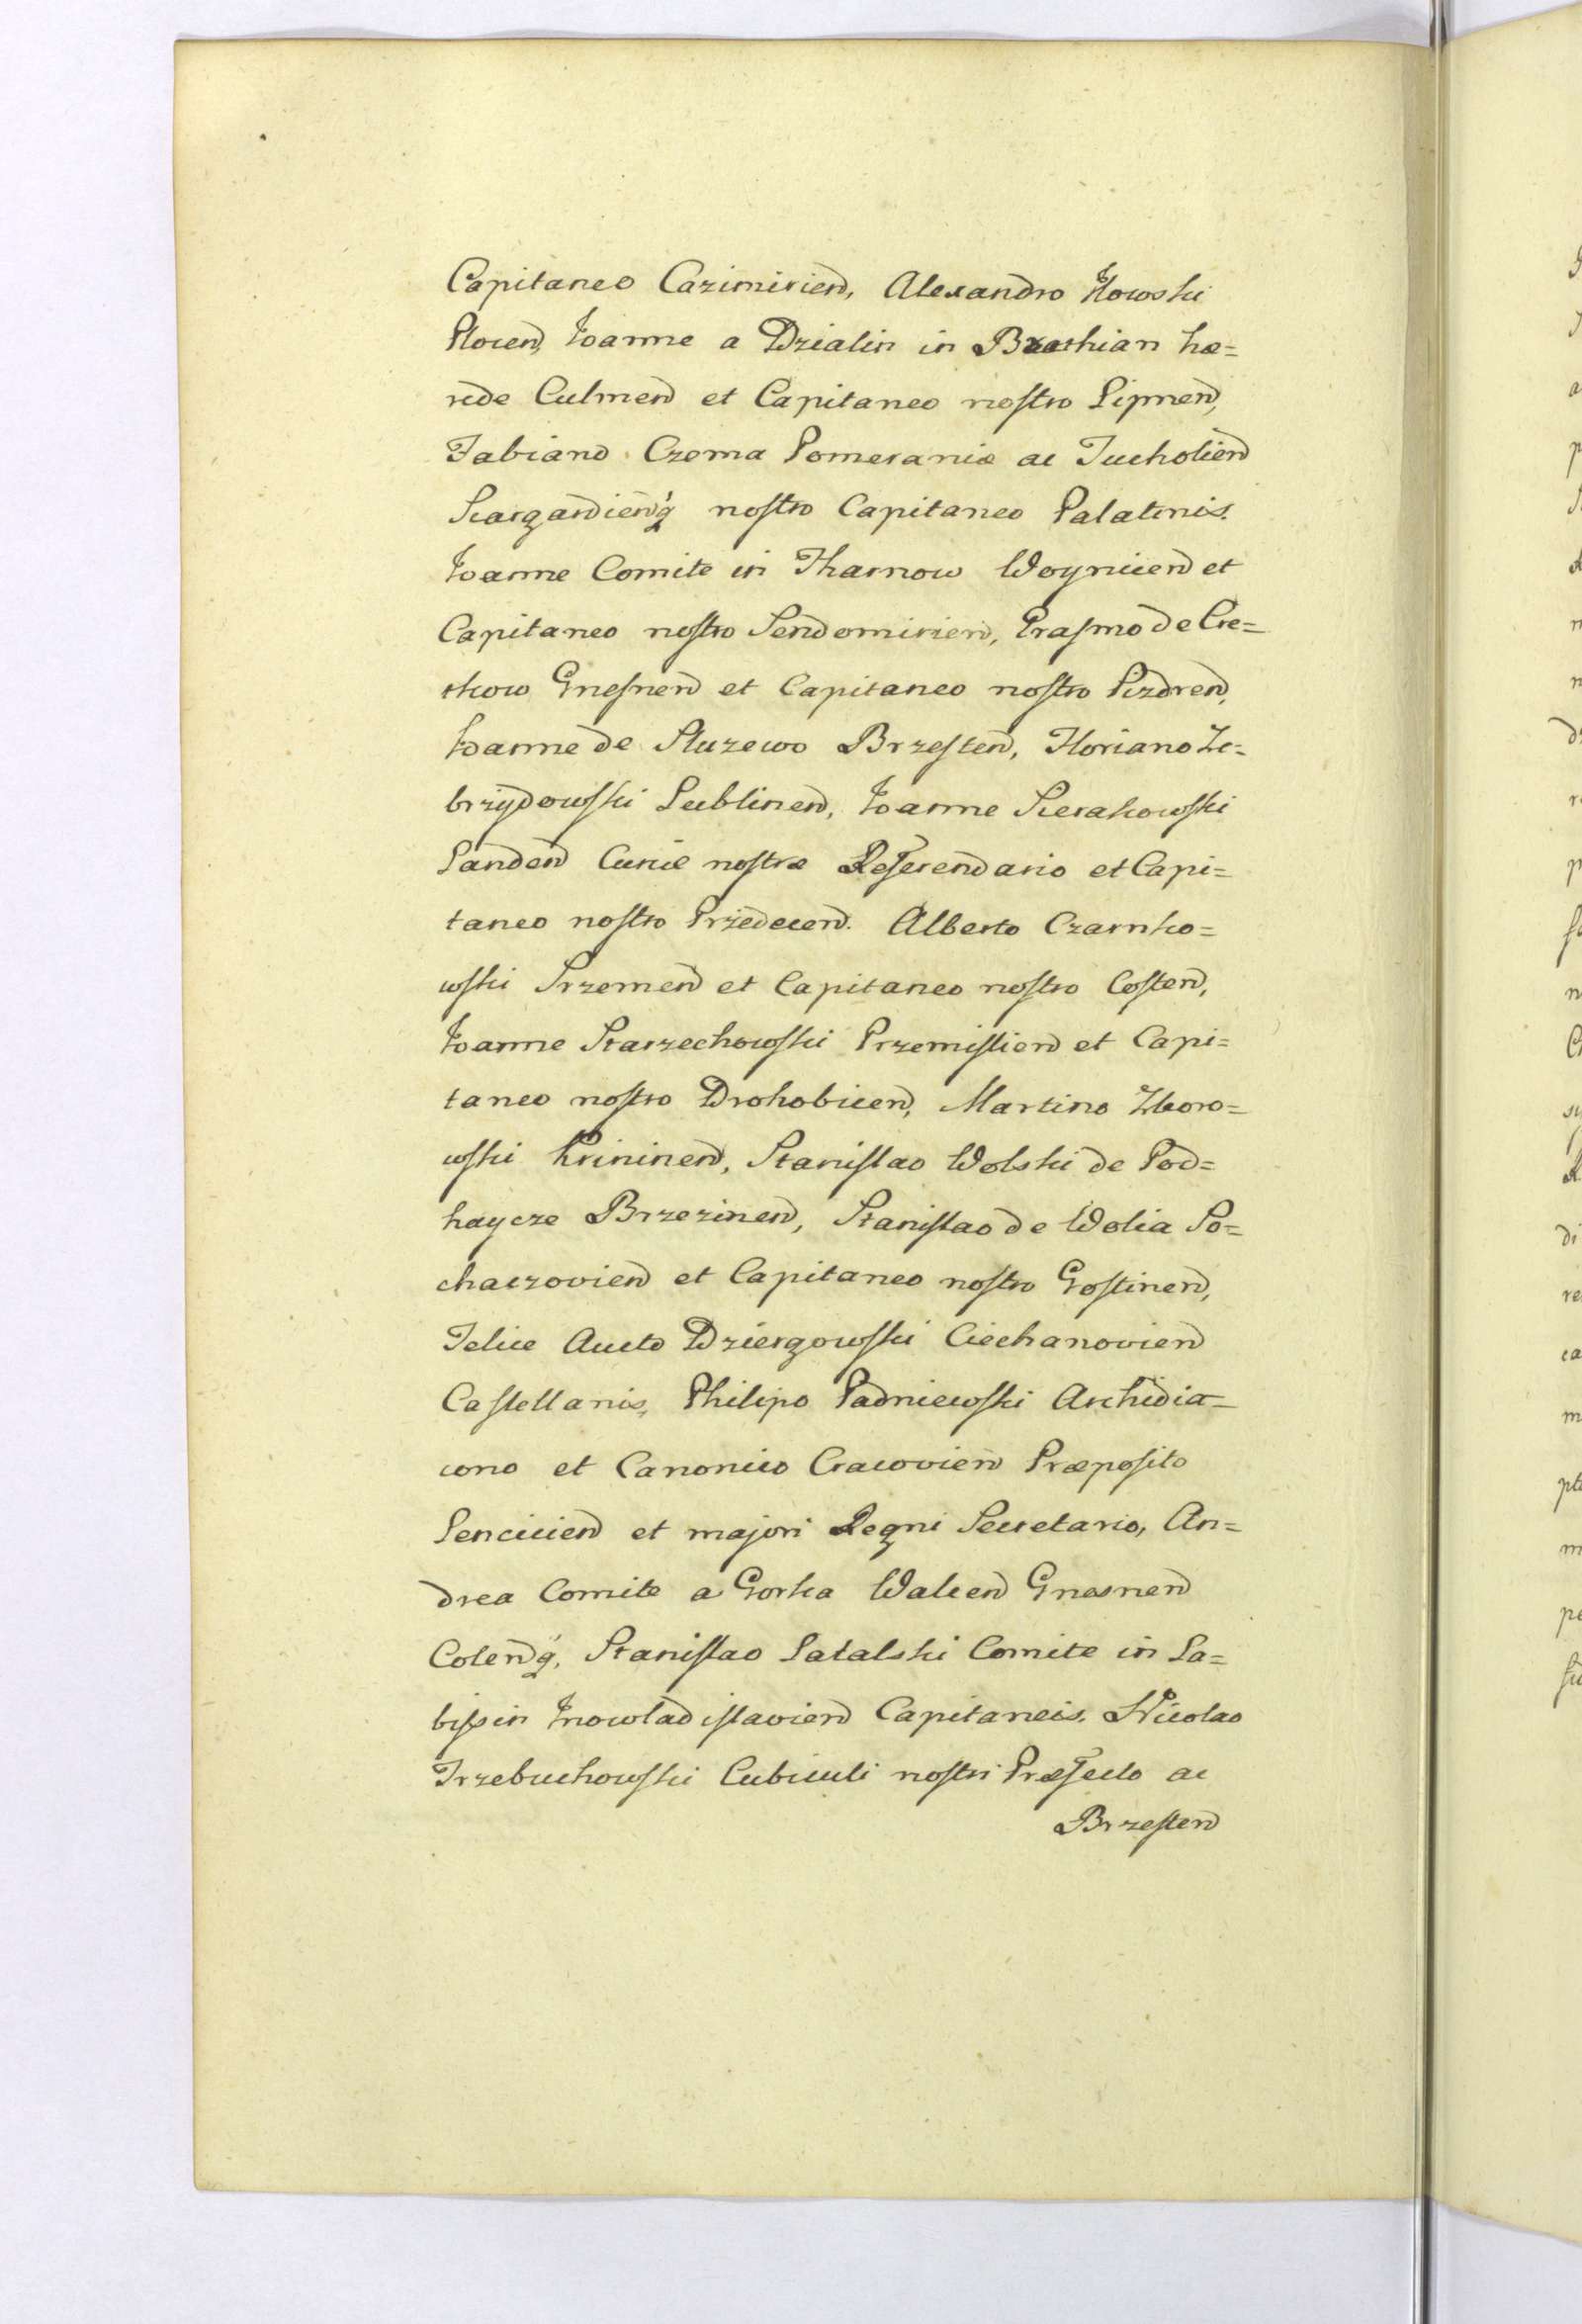 Capitaneo Cazimirien, Alexandro Ilowski
Plocen, Ioanne a Dzialin in Brathian hæ=
rede Culmen et Capitaneo nostro Lipnen,
Fabiano Czema Pomeraniæ ac Tucholien
Stargardienq nostro Capitaneo Palatinis.
Ioanne Comite in Tharnow Woynicen et
Capitaneo nostro Sendomirien, Erasmo de Cre=
tkow Gnesnen et Capitaneo nostro Pizdren,
Ioanne de Sluzewo Brzesten, Floriano Ze=
brzydowski Lublinen, Ioanne Sierakowski
Landen Curiæ nostræ Referendario et Capi=
taneo nostro Przedecen. Alberto Czarnko=
wski Srzemen et Capitaneo nostro Costen,
Ioanne Starzechowski Przemislien et Capi=
taneo nostro Drohobicen, Martino Zboro=
wski Krivinen, Stanislao Wolski de Pod=
haycze Brzezinen, Stanislao de Wolia So=
chaczovien et Capitaneo nostro Gostinen,
Felice Aucto Dziergowski Ciechanovien
Castellanis, Philipo Padniewski Archidia=
cono et Canonico Cracovien Præposito
Lencicien et majori Regni Secretario, An=
drea Comite a Gorka Walcen Gnesnen
Colenq, Stanislao Latalski Comite in La=
bissin Inowladislavien Capitaneis. Nicolao
Trzebuchowski Cubiculi nostri Præfecto ac
Brzesten